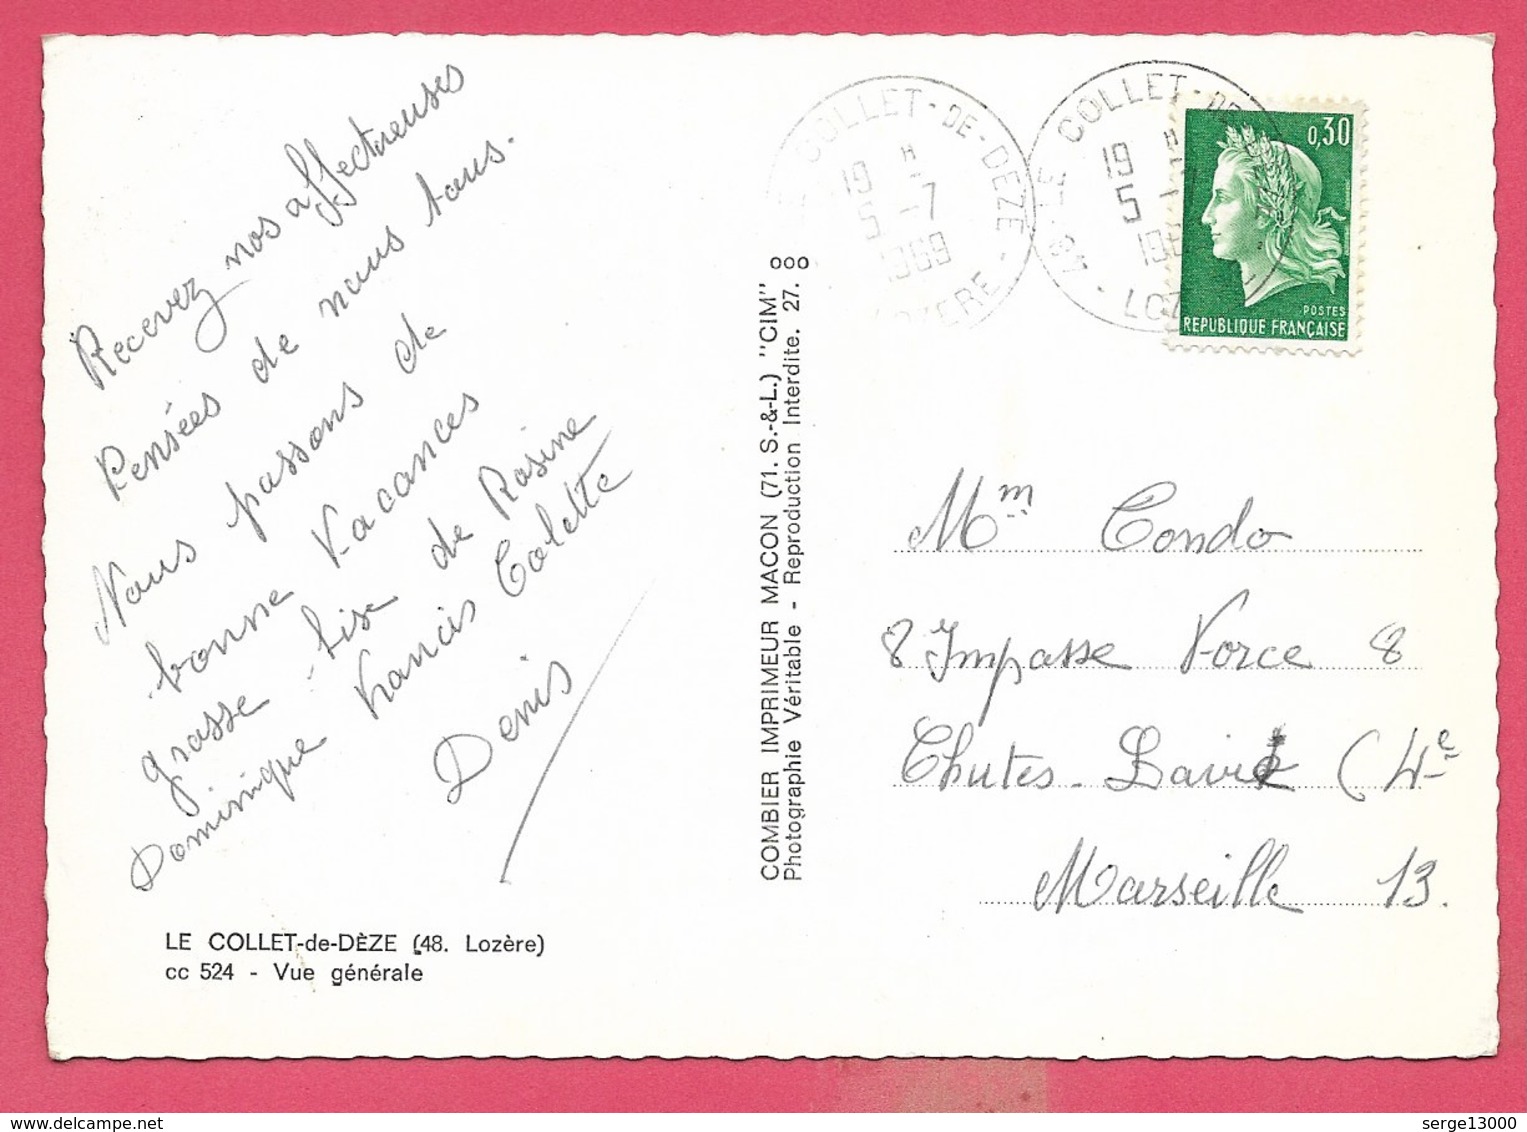 Recevez nos affectueuses
Pensées de nous tous.
Nous passons de
bonne Vacances
grosse bise de Rosine
Dominique Francis Colette
Denis
LE COLLET-de-DÈZE (48. Lozère)
cc 524 - Vue générale
COMBIER IMPRIMEUR MACON (71. S.-&-L.) "CIM"
Photographie Véritable - Reproduction Interdite. 27. 000
COLLET-DE-DEZE
19 H
5 -7
1969
LOZERE
48 LE COLLET-DE
19 H
5 -7
196
LOZ
0,30
POSTES
REPUBLIQUE FRANÇAISE
Mme Condo
8 Impasse Force 8
Chutes-Lavie (4e
Marseille 13.
serge13000